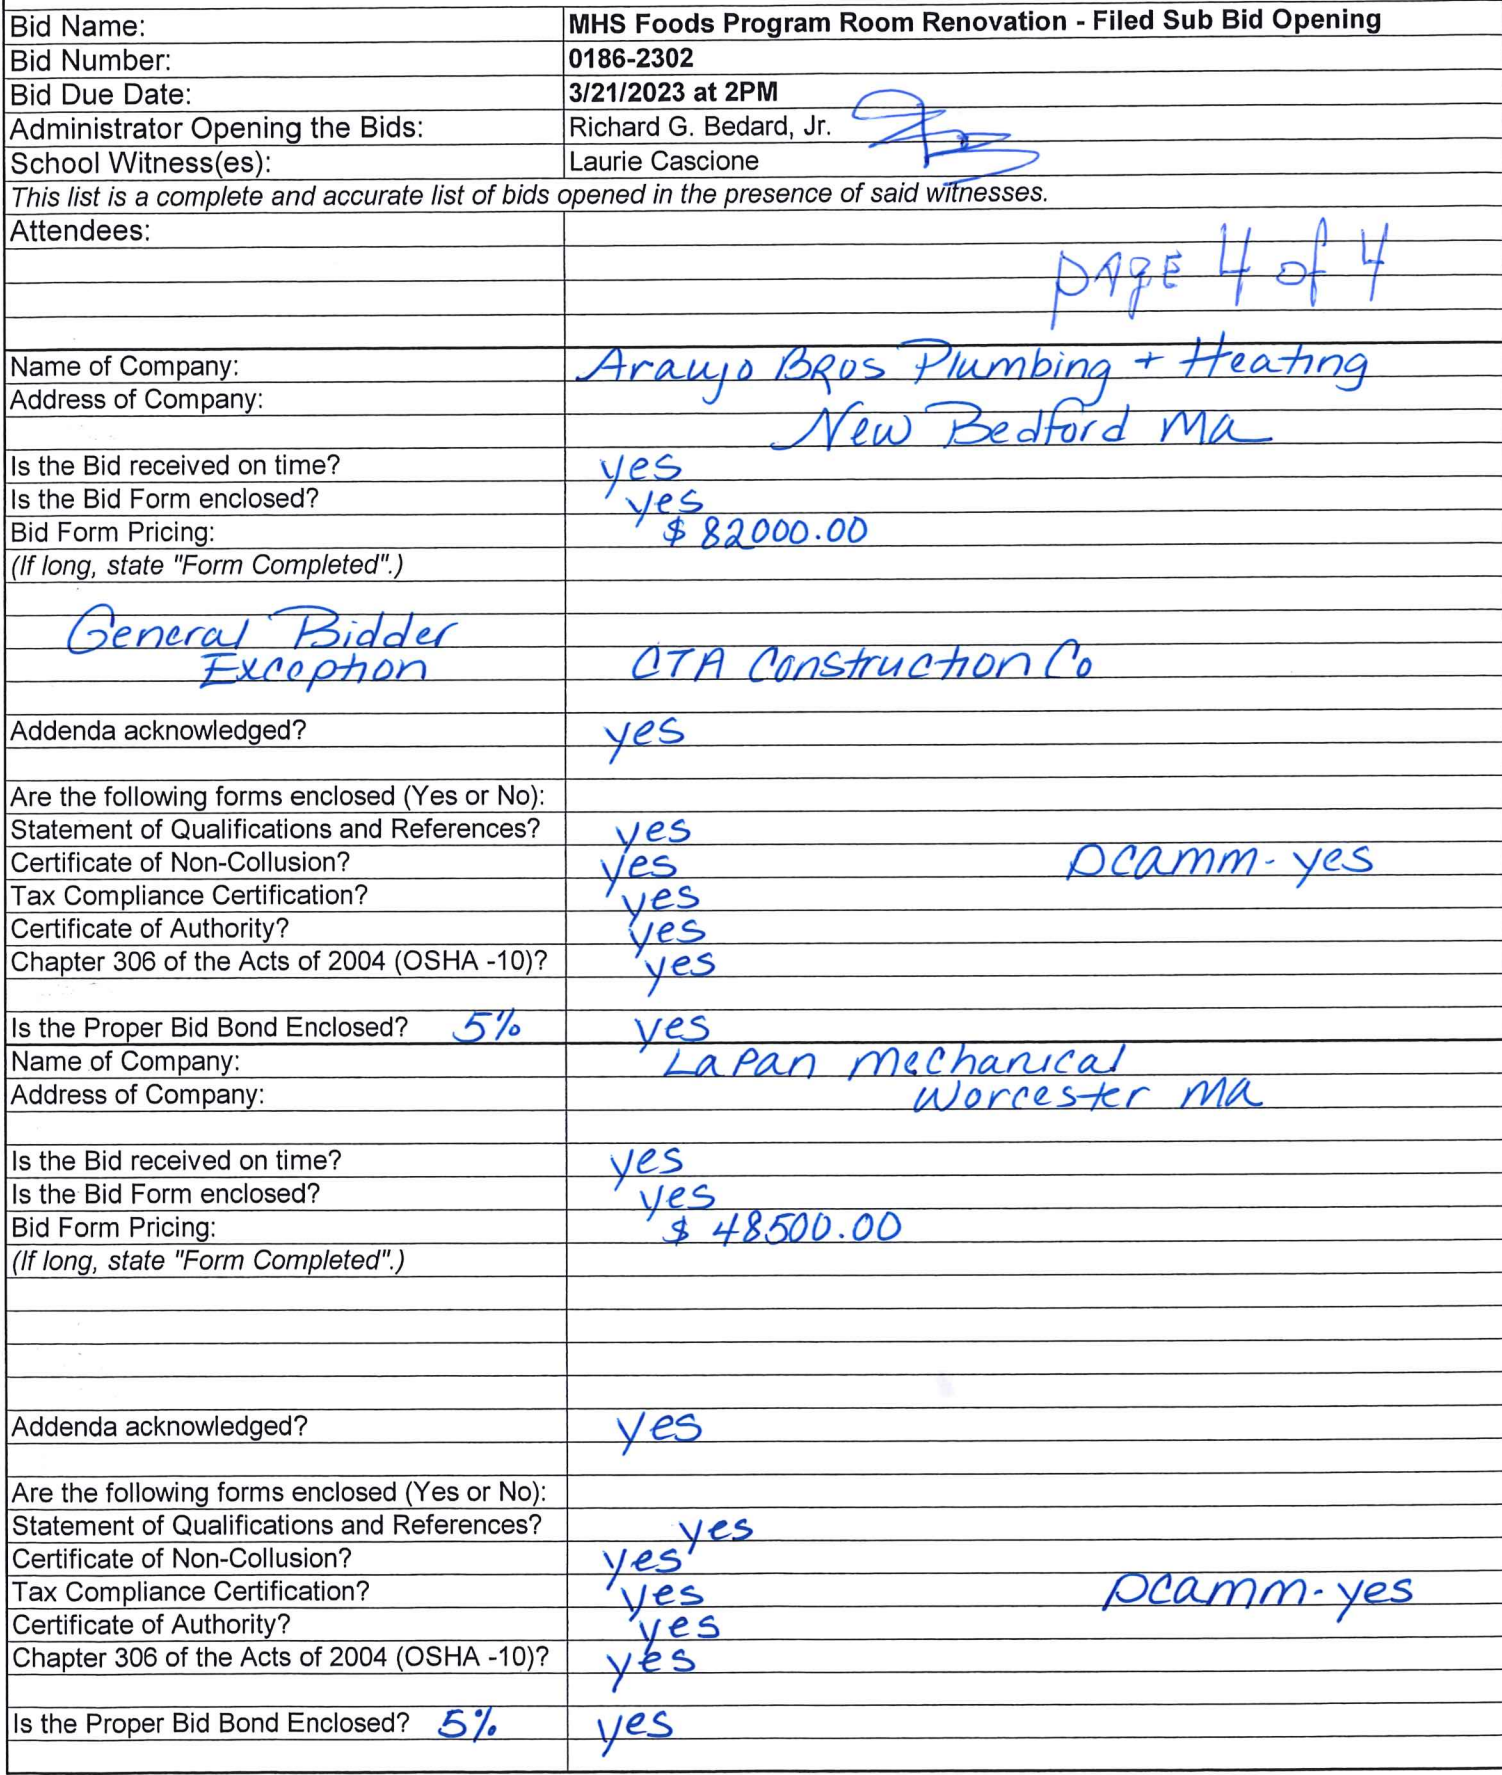 Bid Name: MHS Foods Program Room Renovation - Filed Sub Bid Opening
Bid Number: 0186-2302
Bid Due Date: 3/21/2023 at 2PM
Administrator Opening the Bids: Richard G. Bedard, Jr.
School Witness(es): Laurie Cascione
This list is a complete and accurate list of bids opened in the presence of said witnesses.
Attendees:
PAgE 4 of 4
Name of Company: Araujo BROS Plumbing + Heating
Address of Company:
New Bedford Ma
Is the Bid received on time? yes
Is the Bid Form enclosed? yes
Bid Form Pricing: $ 82000.00
(If long, state "Form Completed".)
General Bidder
Exception CTA Construction Co
Addenda acknowledged? yes
Are the following forms enclosed (Yes or No):
Statement of Qualifications and References? yes
Certificate of Non-Collusion? yes DCamm- yes
Tax Compliance Certification? yes
Certificate of Authority? yes
Chapter 306 of the Acts of 2004 (OSHA -10)? yes
Is the Proper Bid Bond Enclosed? 5% yes
Name of Company: LaPan Mechanical
Address of Company: Worcester Ma
Is the Bid received on time? yes
Is the Bid Form enclosed? yes
Bid Form Pricing: $ 48500.00
(If long, state "Form Completed".)
Addenda acknowledged? yes
Are the following forms enclosed (Yes or No):
Statement of Qualifications and References? yes
Certificate of Non-Collusion? yes
Tax Compliance Certification? yes DCamm- yes
Certificate of Authority? yes
Chapter 306 of the Acts of 2004 (OSHA -10)? yes
Is the Proper Bid Bond Enclosed? 5% yes